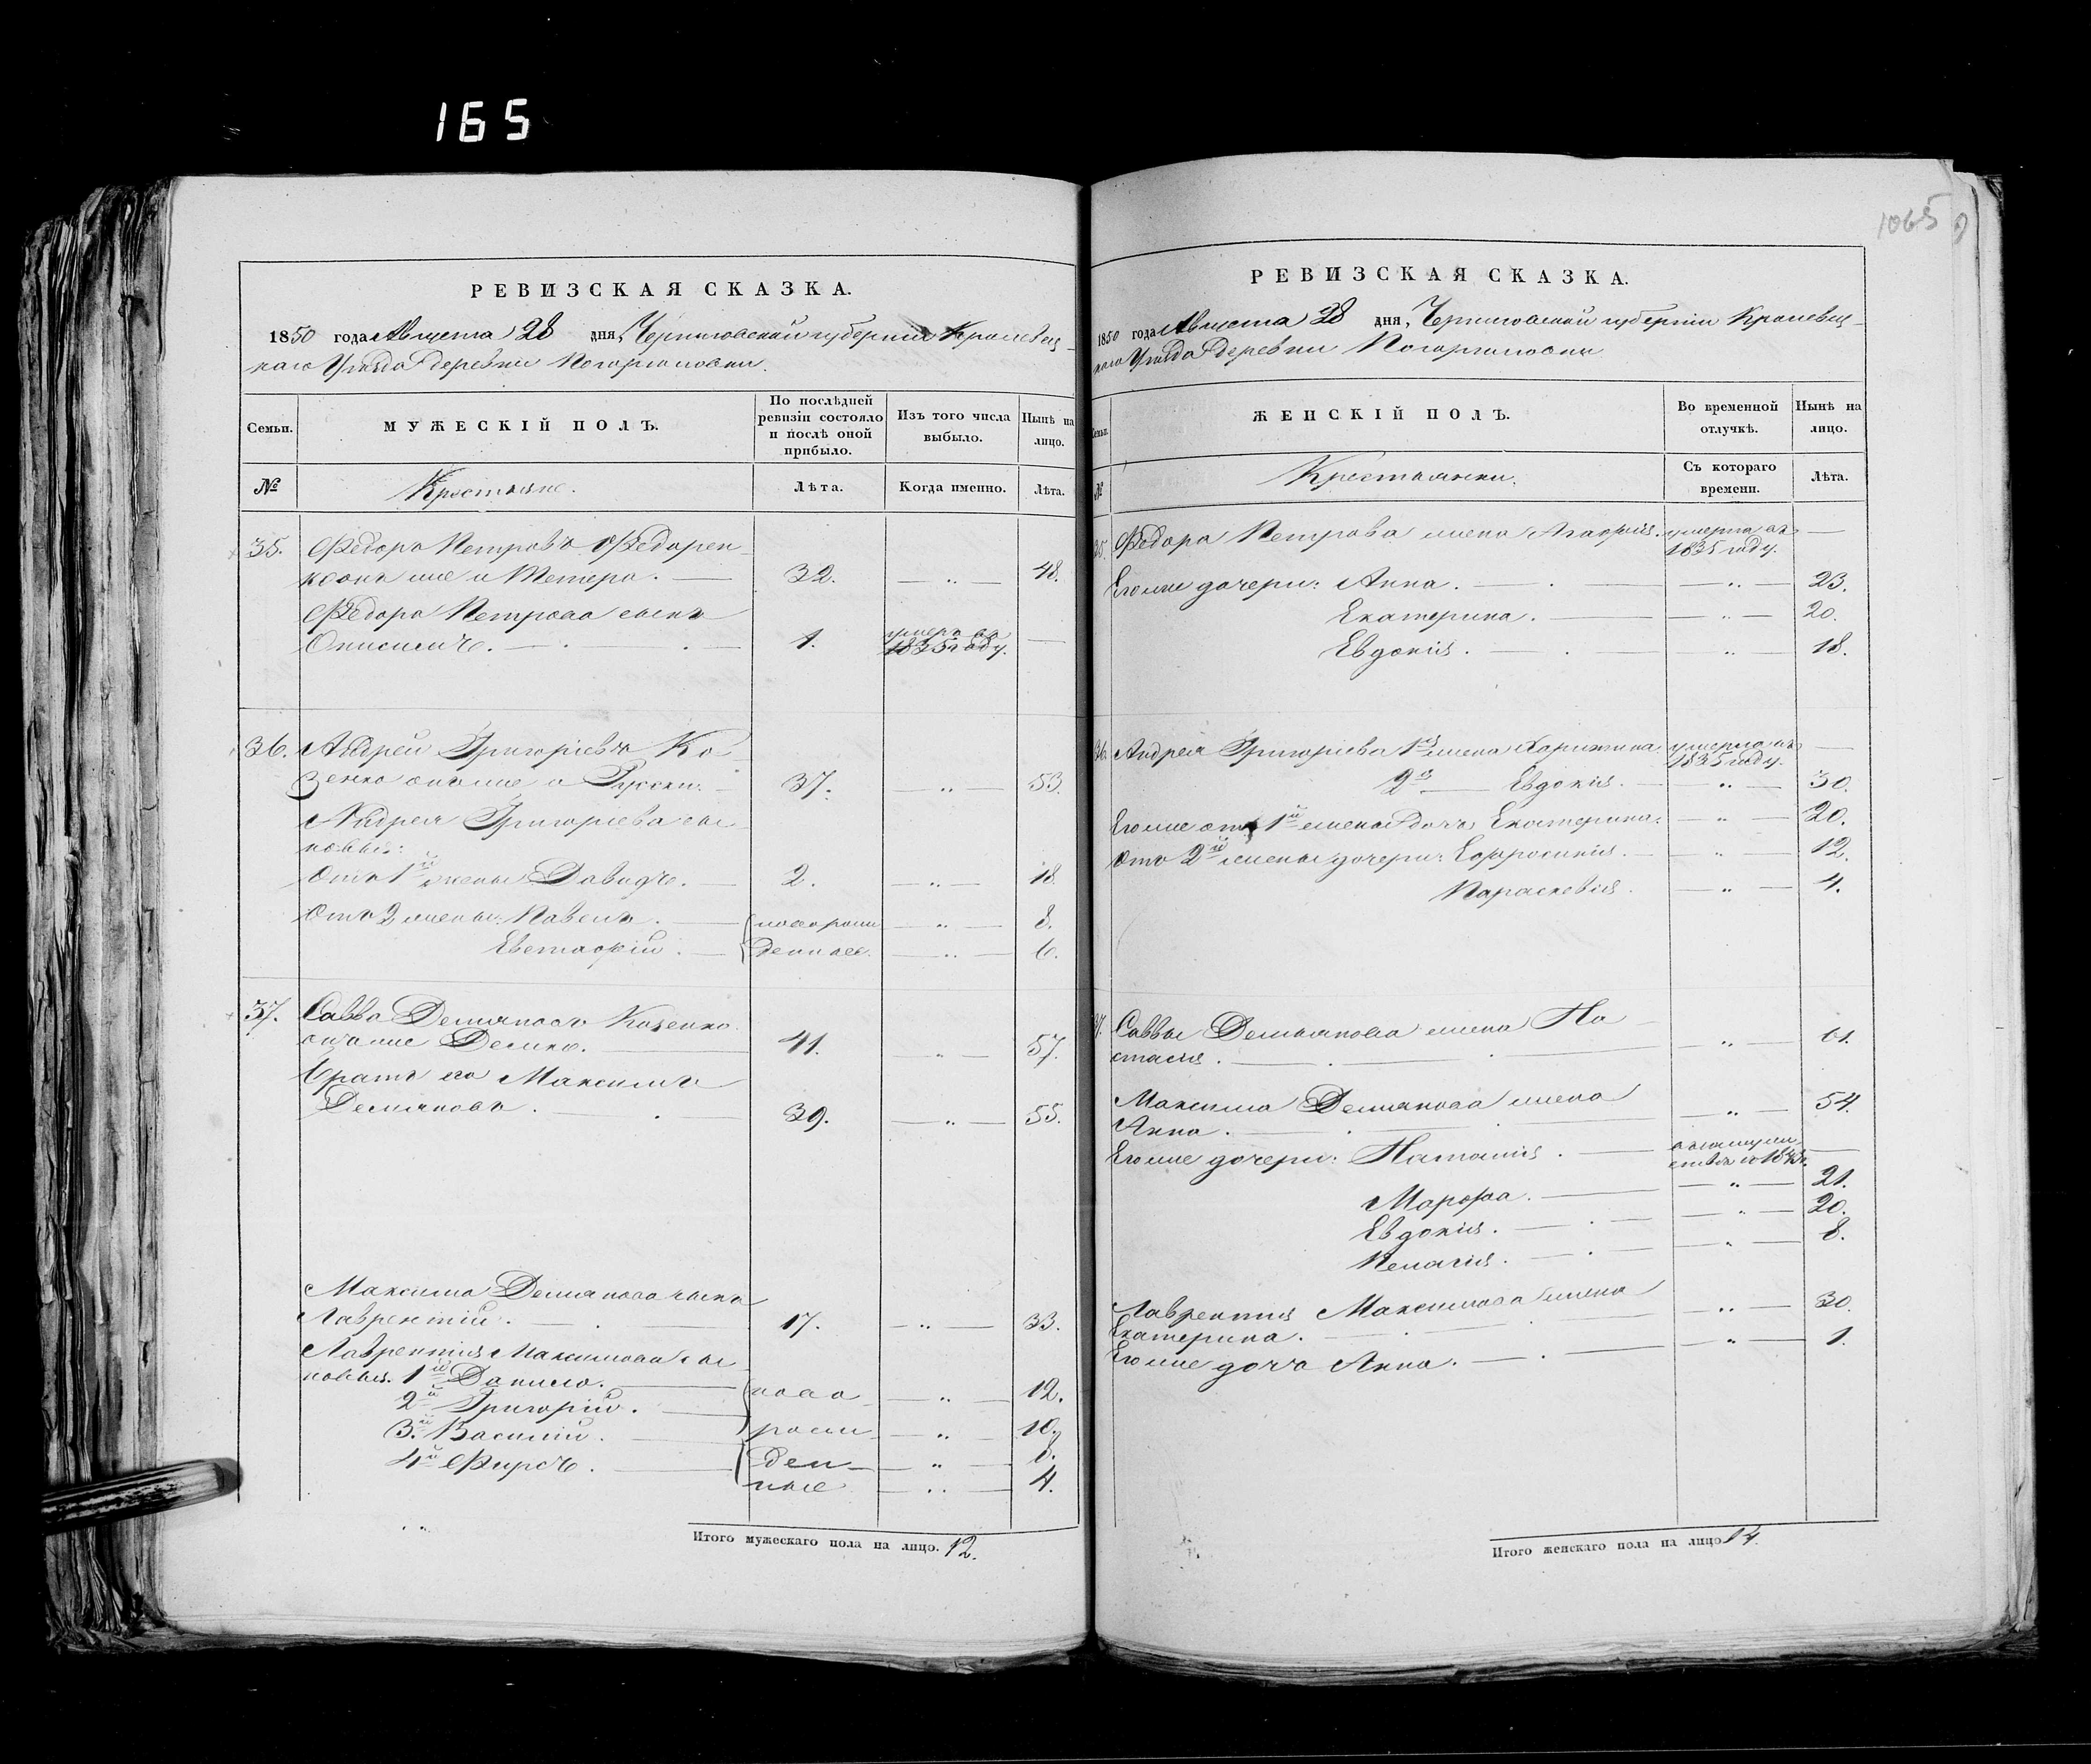 165
1065
РЕВИЗСКАЯ СКАЗКА.
1850 года Августа 28 дня, Черниговской губернии Кролевец-
каго Уезда деревни Погориловки.
Семьи.
МУЖЕСКІЙ ПОЛЪ.
По послѣдней ревизіи состояло и послѣ оной прибыло.
Изъ того числа выбыло.
Нынѣ на лицо.
№
Крестьяне.
Лѣта.
Когда именно.
Лѣта.
35. Федоръ Петровъ Федорен-
ко онъ же и Тетера. 32. — „ — 48.
Федора Петрова сынъ
Онисимъ. 1. умеръ въ 1835 году. —
36. Андрей Григоріевъ Ко-
зенко онъ же и 37. — „ — 53.
Андрея Григоріева сы-
новья:
Отъ 1й жены Давидъ. 2. — „ — 18.
Отъ 2 жены: Павелъ. новорож — „ — 8.
Евстафій. денные. — „ — 6.
37. Савва Демяновъ Козенко
онъ же Демко. 41. — „ — 57.
Братъ его Максимъ
Демяновъ. 39. — „ — 55.
Максима Демянова сынъ
Лаврентій. 17. — „ — 33.
Лаврентія Максимова сы-
новья. 1й Данило. ново — „ — 12.
2й Григорій. рож — „ — 10.
3й Василій. ден — „ — 8.
4й Фирсъ. ные — „ — 4.
Итого мужескаго пола на лицо. 12.
РЕВИЗСКАЯ СКАЗКА.
1850 года Августа 28 дня, Черниговской губерніи Кролевец-
каго Уезда деревни Погориловки
Семьи.
ЖЕНСКІЙ ПОЛЪ.
Во временной отлучкѣ.
Нынѣ на лицо.
№
Крестьянки.
Съ котораго времени.
Лѣта.
35. Федора Петрова жена Агафія. умерла въ 1835 году. —
Его же дочери: Анна. — „ — 23.
Екатерина. — „ — 20.
Евдокія. — „ — 18.
36. Андрея Григоріева 1я жена Харитина. умерла въ 1835 году. —
2я — Евдокія. — „ — 30.
Его же отъ 1й жены дочь Екатерина. — „ — 20.
Отъ 2й жены дочери: Ефросинія. — „ — 12.
Параскевія. — „ — 4.
37. Саввы Демьянова жена На-
стасія. — „ — 61.
Максима Демянова жена
Анна. — „ — 54.
Его же дочери: Наталія. —
Марфа. — „ — 21.
Евдокія. — „ — 20.
Пелагія. — „ — 8.
Лаврентія Максимова жена
Екатерина. — „ — 30.
Его же дочь Анна. — „ — 1.
Итого женскаго пола на лицо 14.